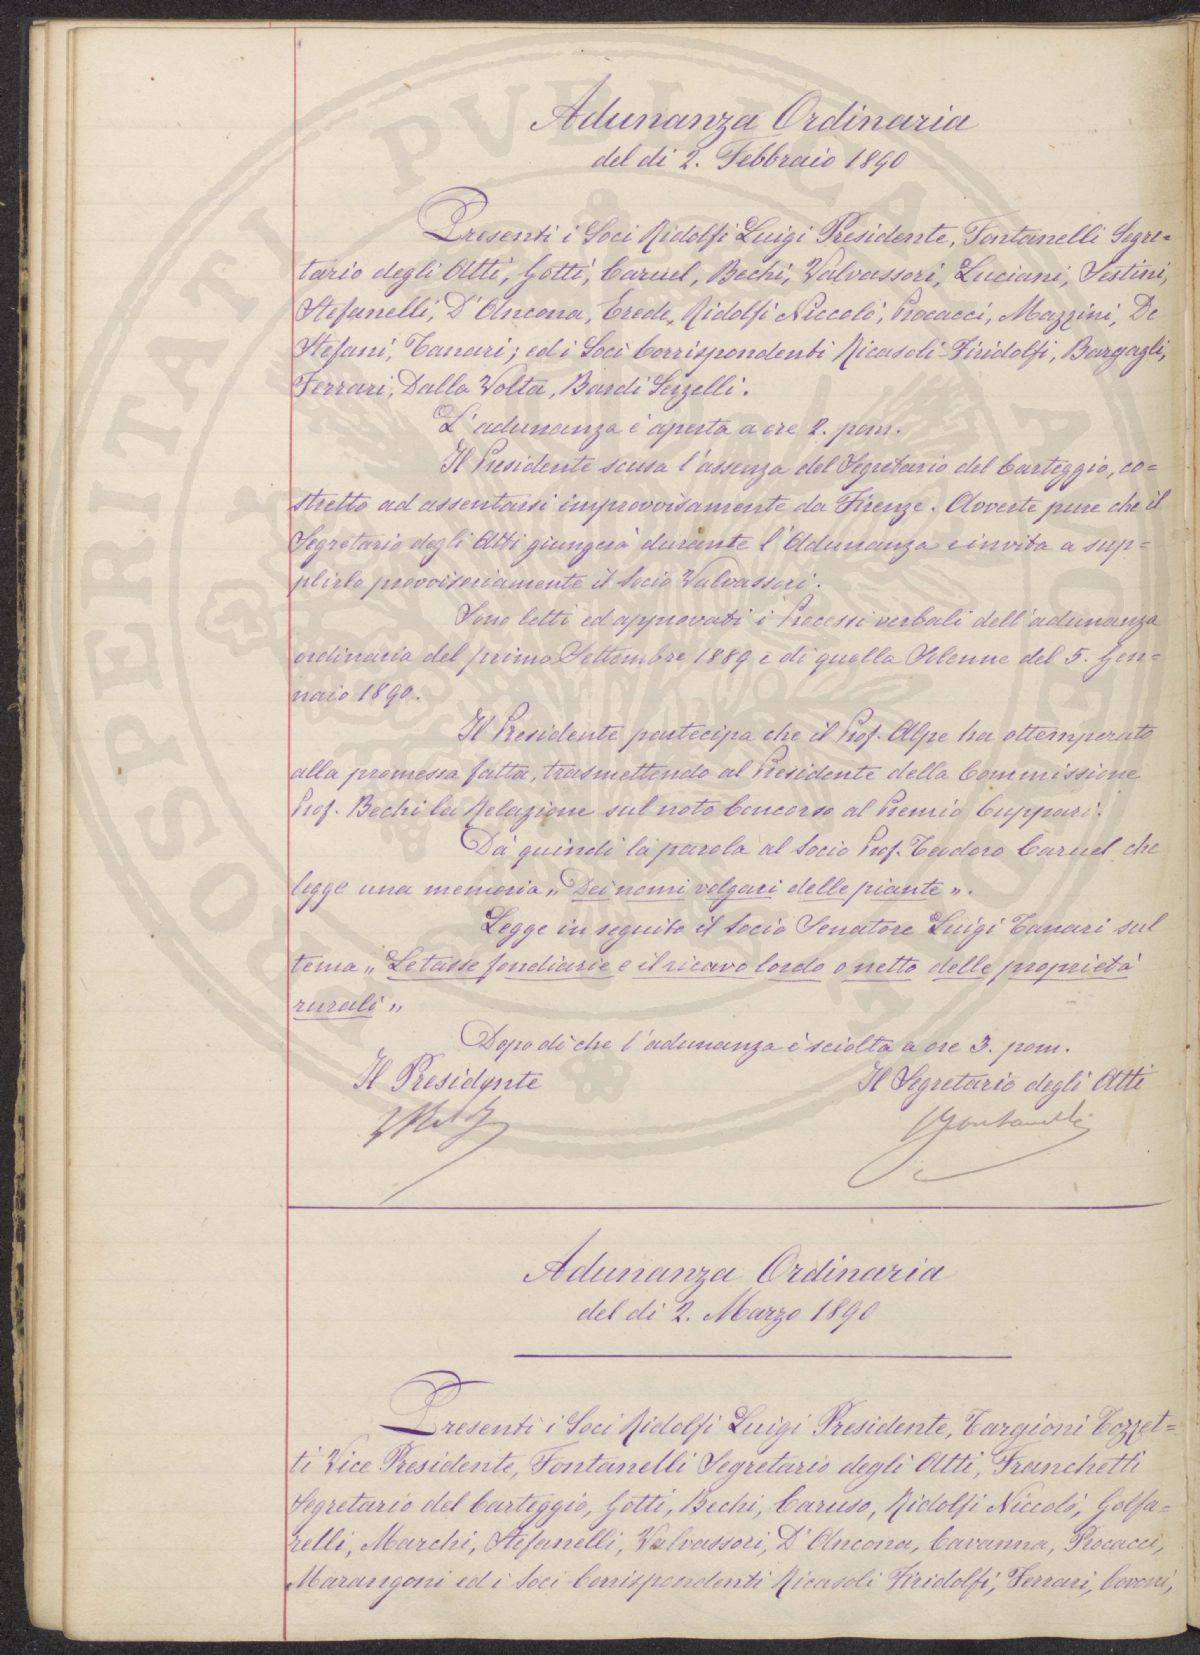 Adunanza Ordinaria
del di 2. Febbraio 1890
Presenti i Soci Ridolfi Luigi Presidente, Fontanelli Segre=
tario degli Atti, Gotti, Caruel, Bechi, Valvassori, Luciani, Sestini,
Stefanelli, D'Ancona, Erede, Ridolfi Niccolò, Procacci, Mazzini, De
Stefani, Tanari; ed i Soci Corrispondenti Ricasoli-Firidolfi, Bargagli,
Ferrari, Dalla Volta, Bardi Serzelli.
L'adunanza è aperta a ore 2. pom.
Il Presidente scusa l'assenza del Segretario del Carteggio, co=
stretto ad assentarsi improvvisamente da Firenze. Avverte pure che il
Segretario degli Atti giungerà durante l'Adunanza e invita a sup=
plirlo provvisoriamente il Socio Valvassori.
Sono letti ed approvati i Processi verbali dell'adunanza
ordinaria del primo Settembre 1889 e di quella Solenne del 5. Gen=
naio 1890.
Il Presidente partecipa che il Prof. Alpe ha ottemperato
alla promessa fatta, trasmettendo al Presidente della Commissione
Prof. Bechi la Relazione sul noto Concorso al Premio Cuppari.
Dà quindi la parola al Socio Prof. Teodoro Caruel che
legge una memoria „Dei nomi volgari delle piante".
Legge in seguito il Socio Senatore Luigi Tanari sul
tema „Le tasse fondiarie e il ricavo lordo o netto delle proprietà
rurali"
Dopo di che l'adunanza è sciolta a ore 3. pom.
Il Presidente Il Segretario degli Atti
Fontanelli
Adunanza Ordinaria
del di 2. Marzo 1890
Presenti i Soci Ridolfi Luigi Presidente, Targioni Tozzet=
ti Vice Presidente, Fontanelli Segretario degli Atti, Franchetti
Segretario del Carteggio, Gotti, Bechi, Caruso, Ridolfi Niccolò, Golfa=
relli, Marchi, Stefanelli, Valvassori, D'Ancona, Cavanna, Procacci,
Marangoni ed i Soci Corrispondenti Ricasoli Firidolfi, Ferrari, Covoni,